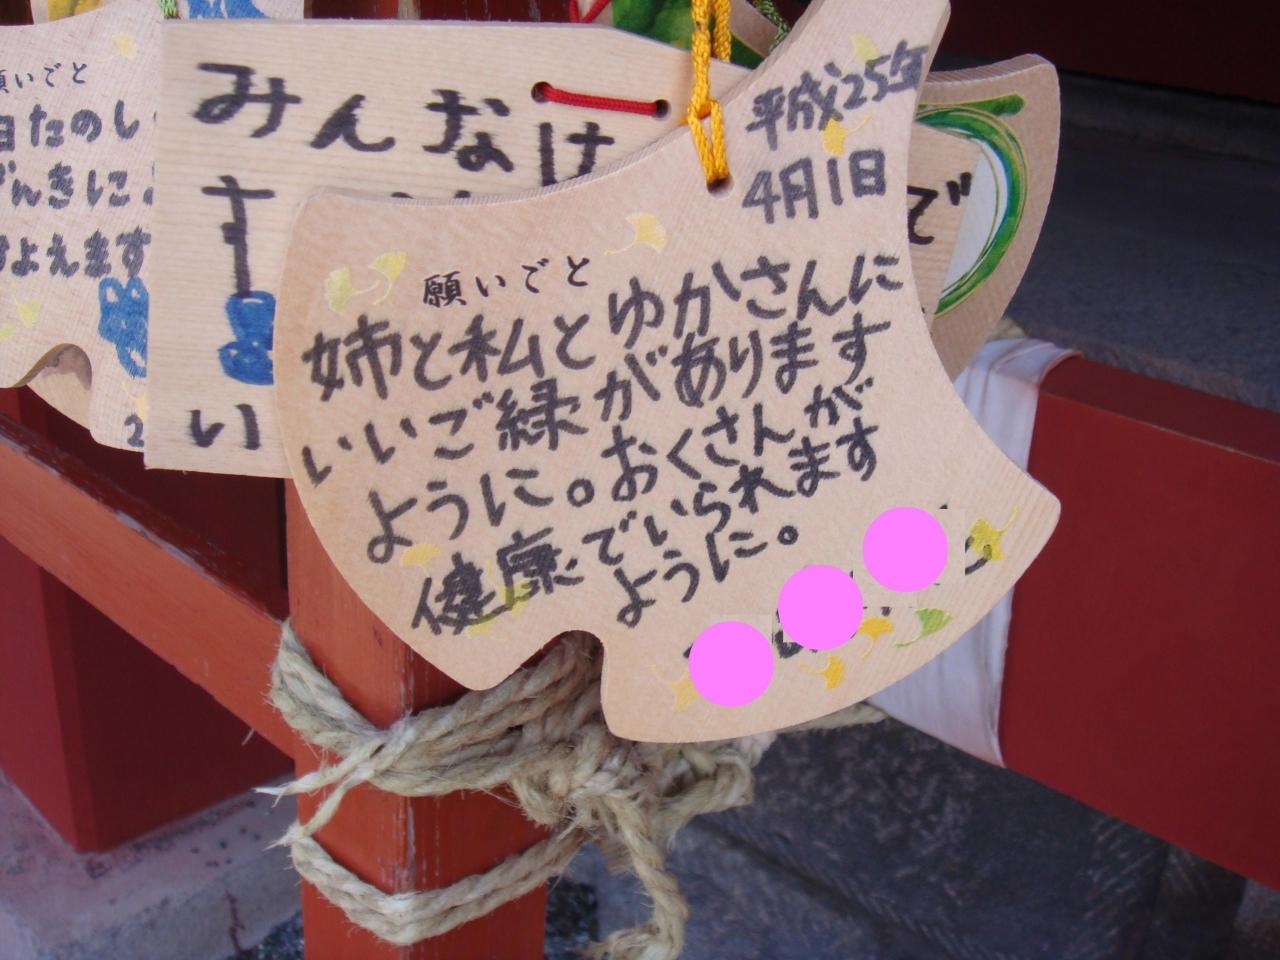 願いごと
日たのし
げんきに
すよえます
2
みんなけ
す
い
で
平成25年
4月1日
願いごと
姉と私とゆかさんに
いいご縁があります
ように。おくさんが
健康でいられます
ように。